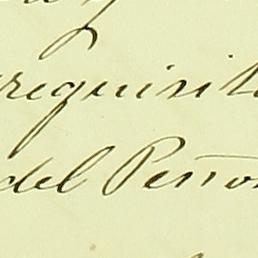 requisit
del Peñon